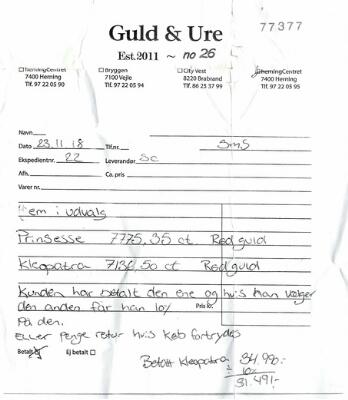 77377
Guld & Ure
Est.2011 ~ no 26
HerningCentret Bryggen City Vest HerningCentret
7400 Herning 7100 Vejle 8220 Brabrand 7400 Herning
Tlf. 97 22 05 90 Tlf. 97 22 05 94 Tlf. 86 25 37 99 Tlf. 97 22 05 95
Navn
Dato 23.11.18 Tlf.nr. SMS
Ekspedientnr. 22 Leverandør Sc
Afh. Ca. pris
Varer nr.
em i udvalg
Prinsesse 7775,35 ct Rødguld
Kleopatra 7136,50 ct Rødguld
Kunden har betalt den ene og hvis han vælger
den anden får han 10%
Pris kr.
På den.
Eller penge retur hvis køb fortrydes
Betalt Ej betalt
Betalt Kleopatra 34.990:-
10%
31.491,-